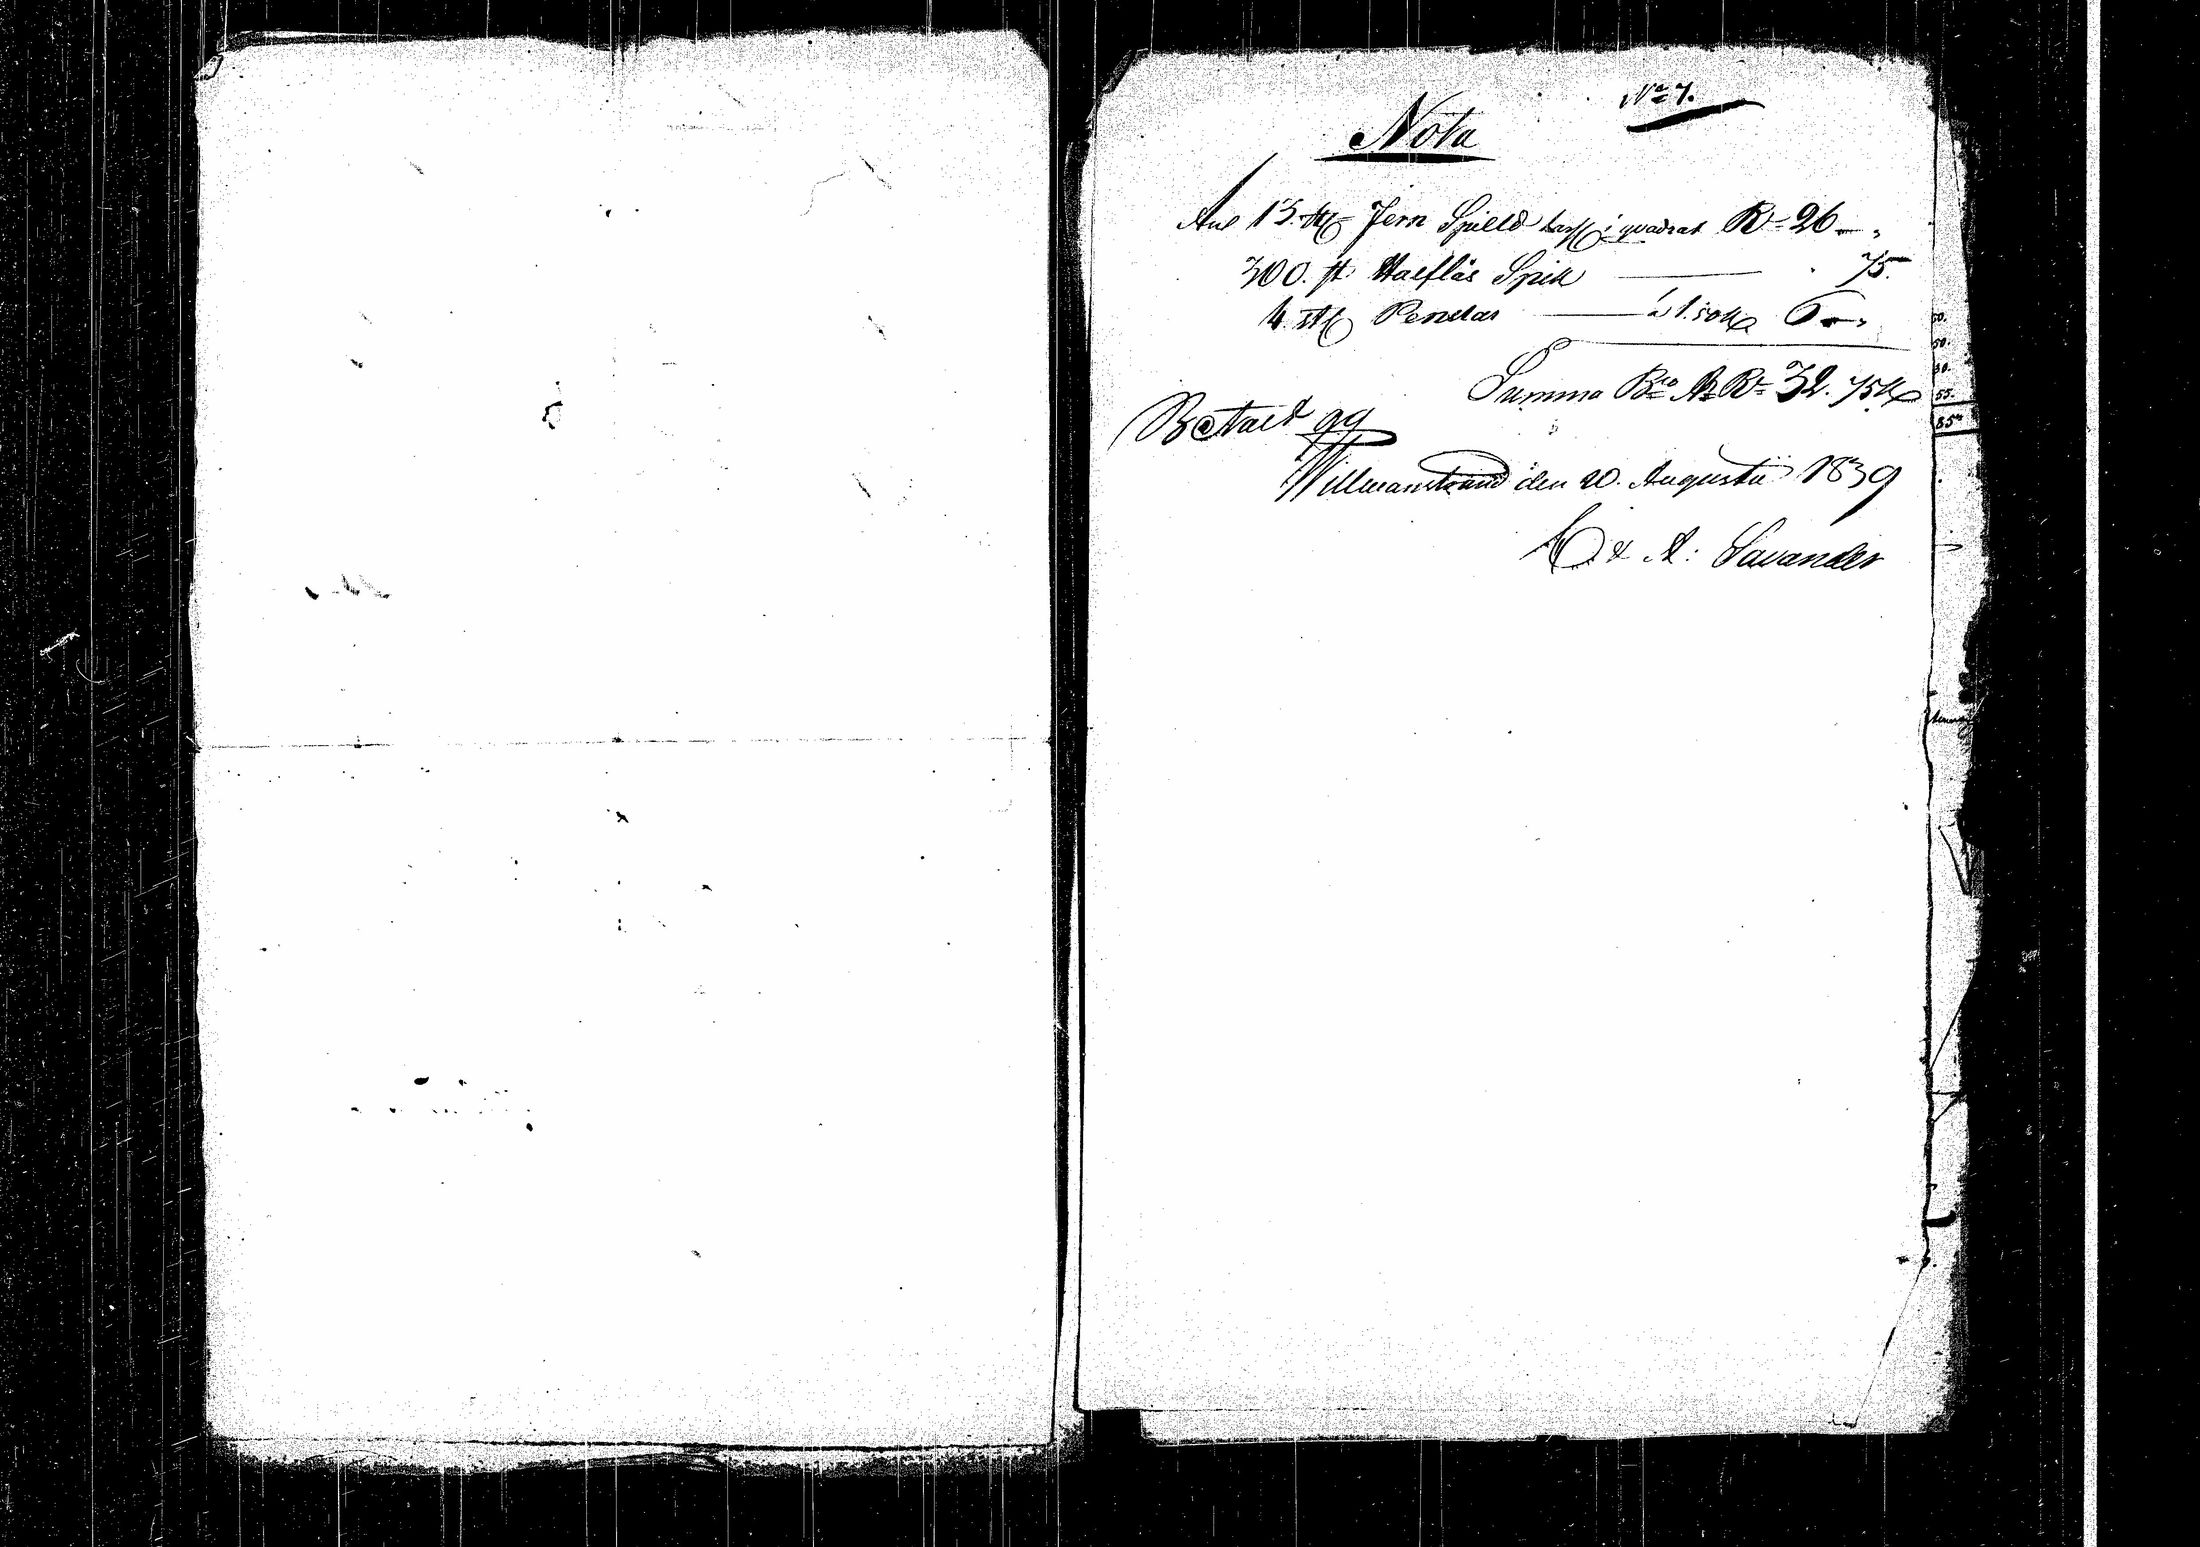 No 7.
Nota
Aul 13. st Jern Spield i quadrat R 26 -
300. st. Halflås Spik 75.
4 st Penslar á 1.50 K 6 -
Summa Bco A R 32. 75 K
Betalt
Willmanstrand den 20. Augusti 1839
& A: Savander
50.
50.
30.
55.
85